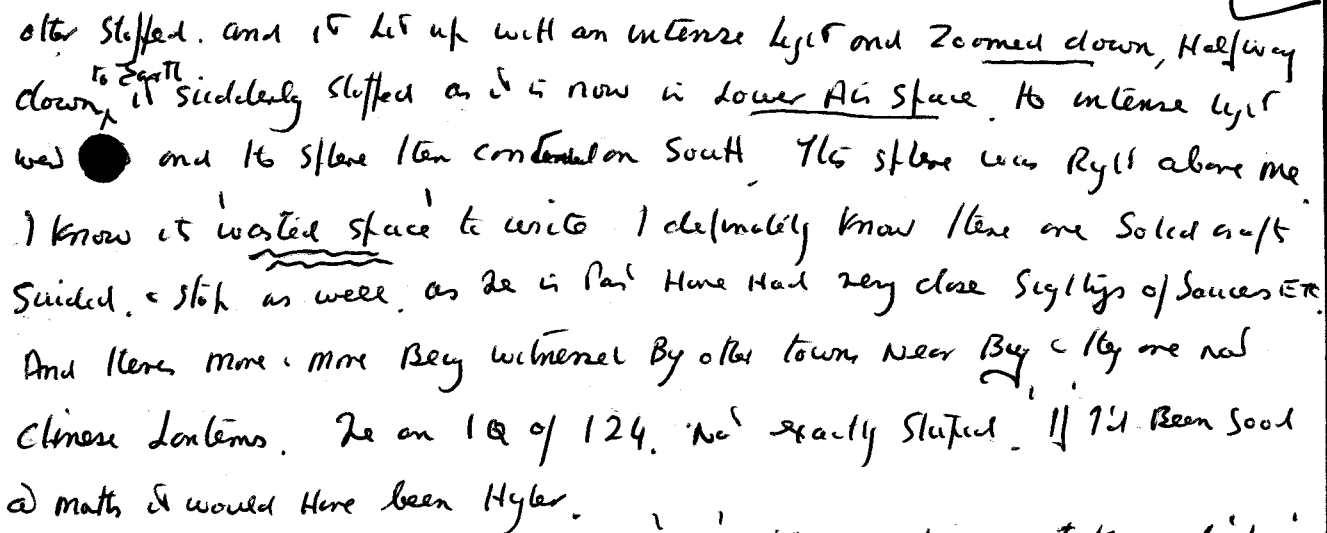 other stopped. and it lit up with an intense light and Zoomed down, Halfway
down to Earth, it suddenly stopped as it is now in Lower Air Space. Its intense light
was and the sphere then continued on South. This sphere was Right above me.
I know it 'wasted space' to write I definitely know there are Solid craft
Guided. & stop as well. as Ive in Past Have Had very close Sightings of Saucers ETC.
And theres more & more Being witnessed By other towns Near & they are not
Chinese Lanterns. Ive an IQ of 124. Not exactly Stupid. If I'd Been Good
@ maths it would Have been Higher.